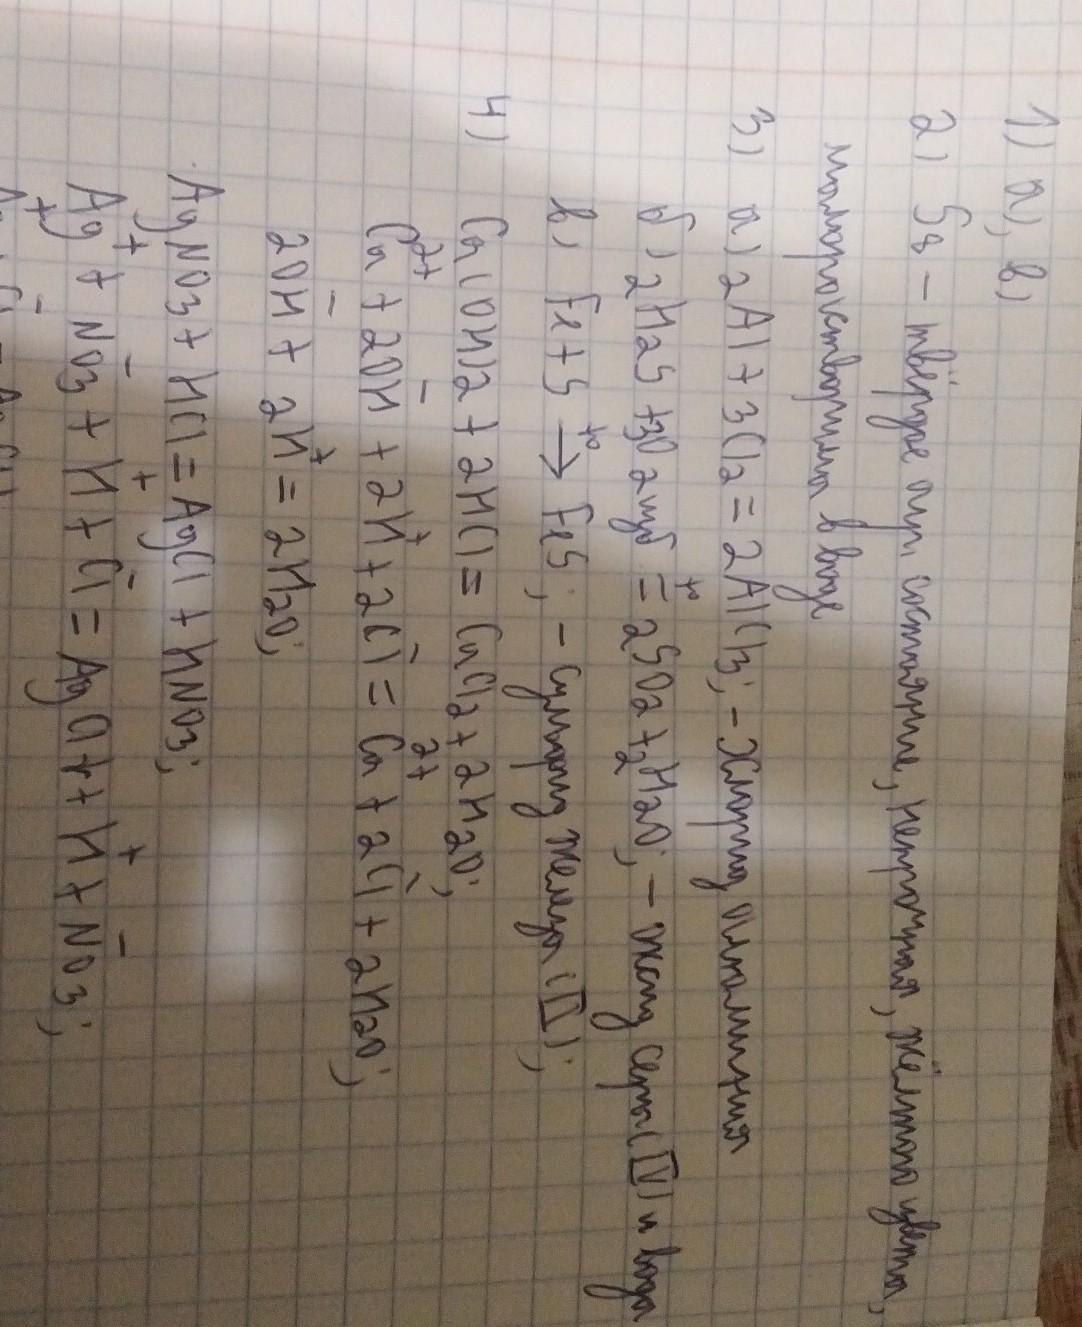 1) а), в)
2) S8 - твёрдое агр состояние, непрочная, жёлтого цвета,
малорастворима в воде
3) а) 2Al + 3Cl2 = 2AlCl3; - Хлорид алюминия
б) 2H2S + 3O2 изб = t° 2SO2 + 2H2O; - оксид серы (IV) и вода
в) Fe + S →t° FeS; - сульфид железа (II);
4) Ca(OH)2 + 2HCl = CaCl2 + 2H2O;
Ca²⁺ + 2OH⁻ + 2H⁺ + 2Cl⁻ = Ca²⁺ + 2Cl⁻ + 2H2O;
2OH⁻ + 2H⁺ = 2H2O;
AgNO3 + HCl = AgCl + HNO3;
Ag⁺ + NO3⁻ + H⁺ + Cl⁻ = AgCl + H⁺ + NO3⁻;